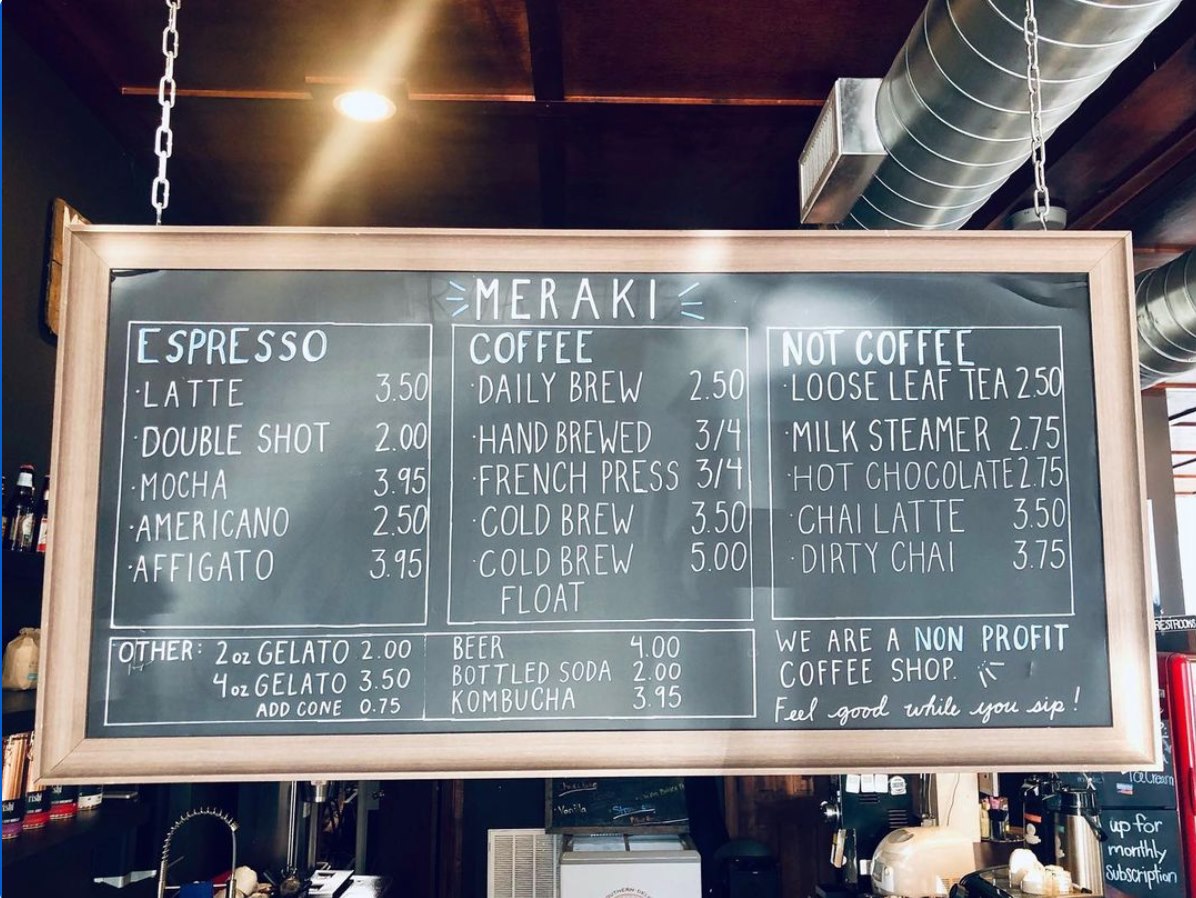 MERAKI
ESPRESSO
·LATTE 3.50
·DOUBLE SHOT 2.00
·MOCHA 3.95
·AMERICANO 2.50
·AFFIGATO 3.95
COFFEE
·DAILY BREW 2.50
·HAND BREWED 3/4
·FRENCH PRESS 3/4
·COLD BREW 3.50
·COLD BREW 5.00
FLOAT
NOT COFFEE
·LOOSE LEAF TEA 2.50
·MILK STEAMER 2.75
·HOT CHOCOLATE 2.75
·CHAI LATTE 3.50
·DIRTY CHAI 3.75
OTHER: 2oz GELATO 2.00
4oz GELATO 3.50
ADD CONE 0.75
BEER 4.00
BOTTLED SODA 2.00
KOMBUCHA 3.95
WE ARE A NON PROFIT
COFFEE SHOP.
Feel good while you sip!
RESTROOMS
Vanilla
Ice Cream
up for
monthly
subscription